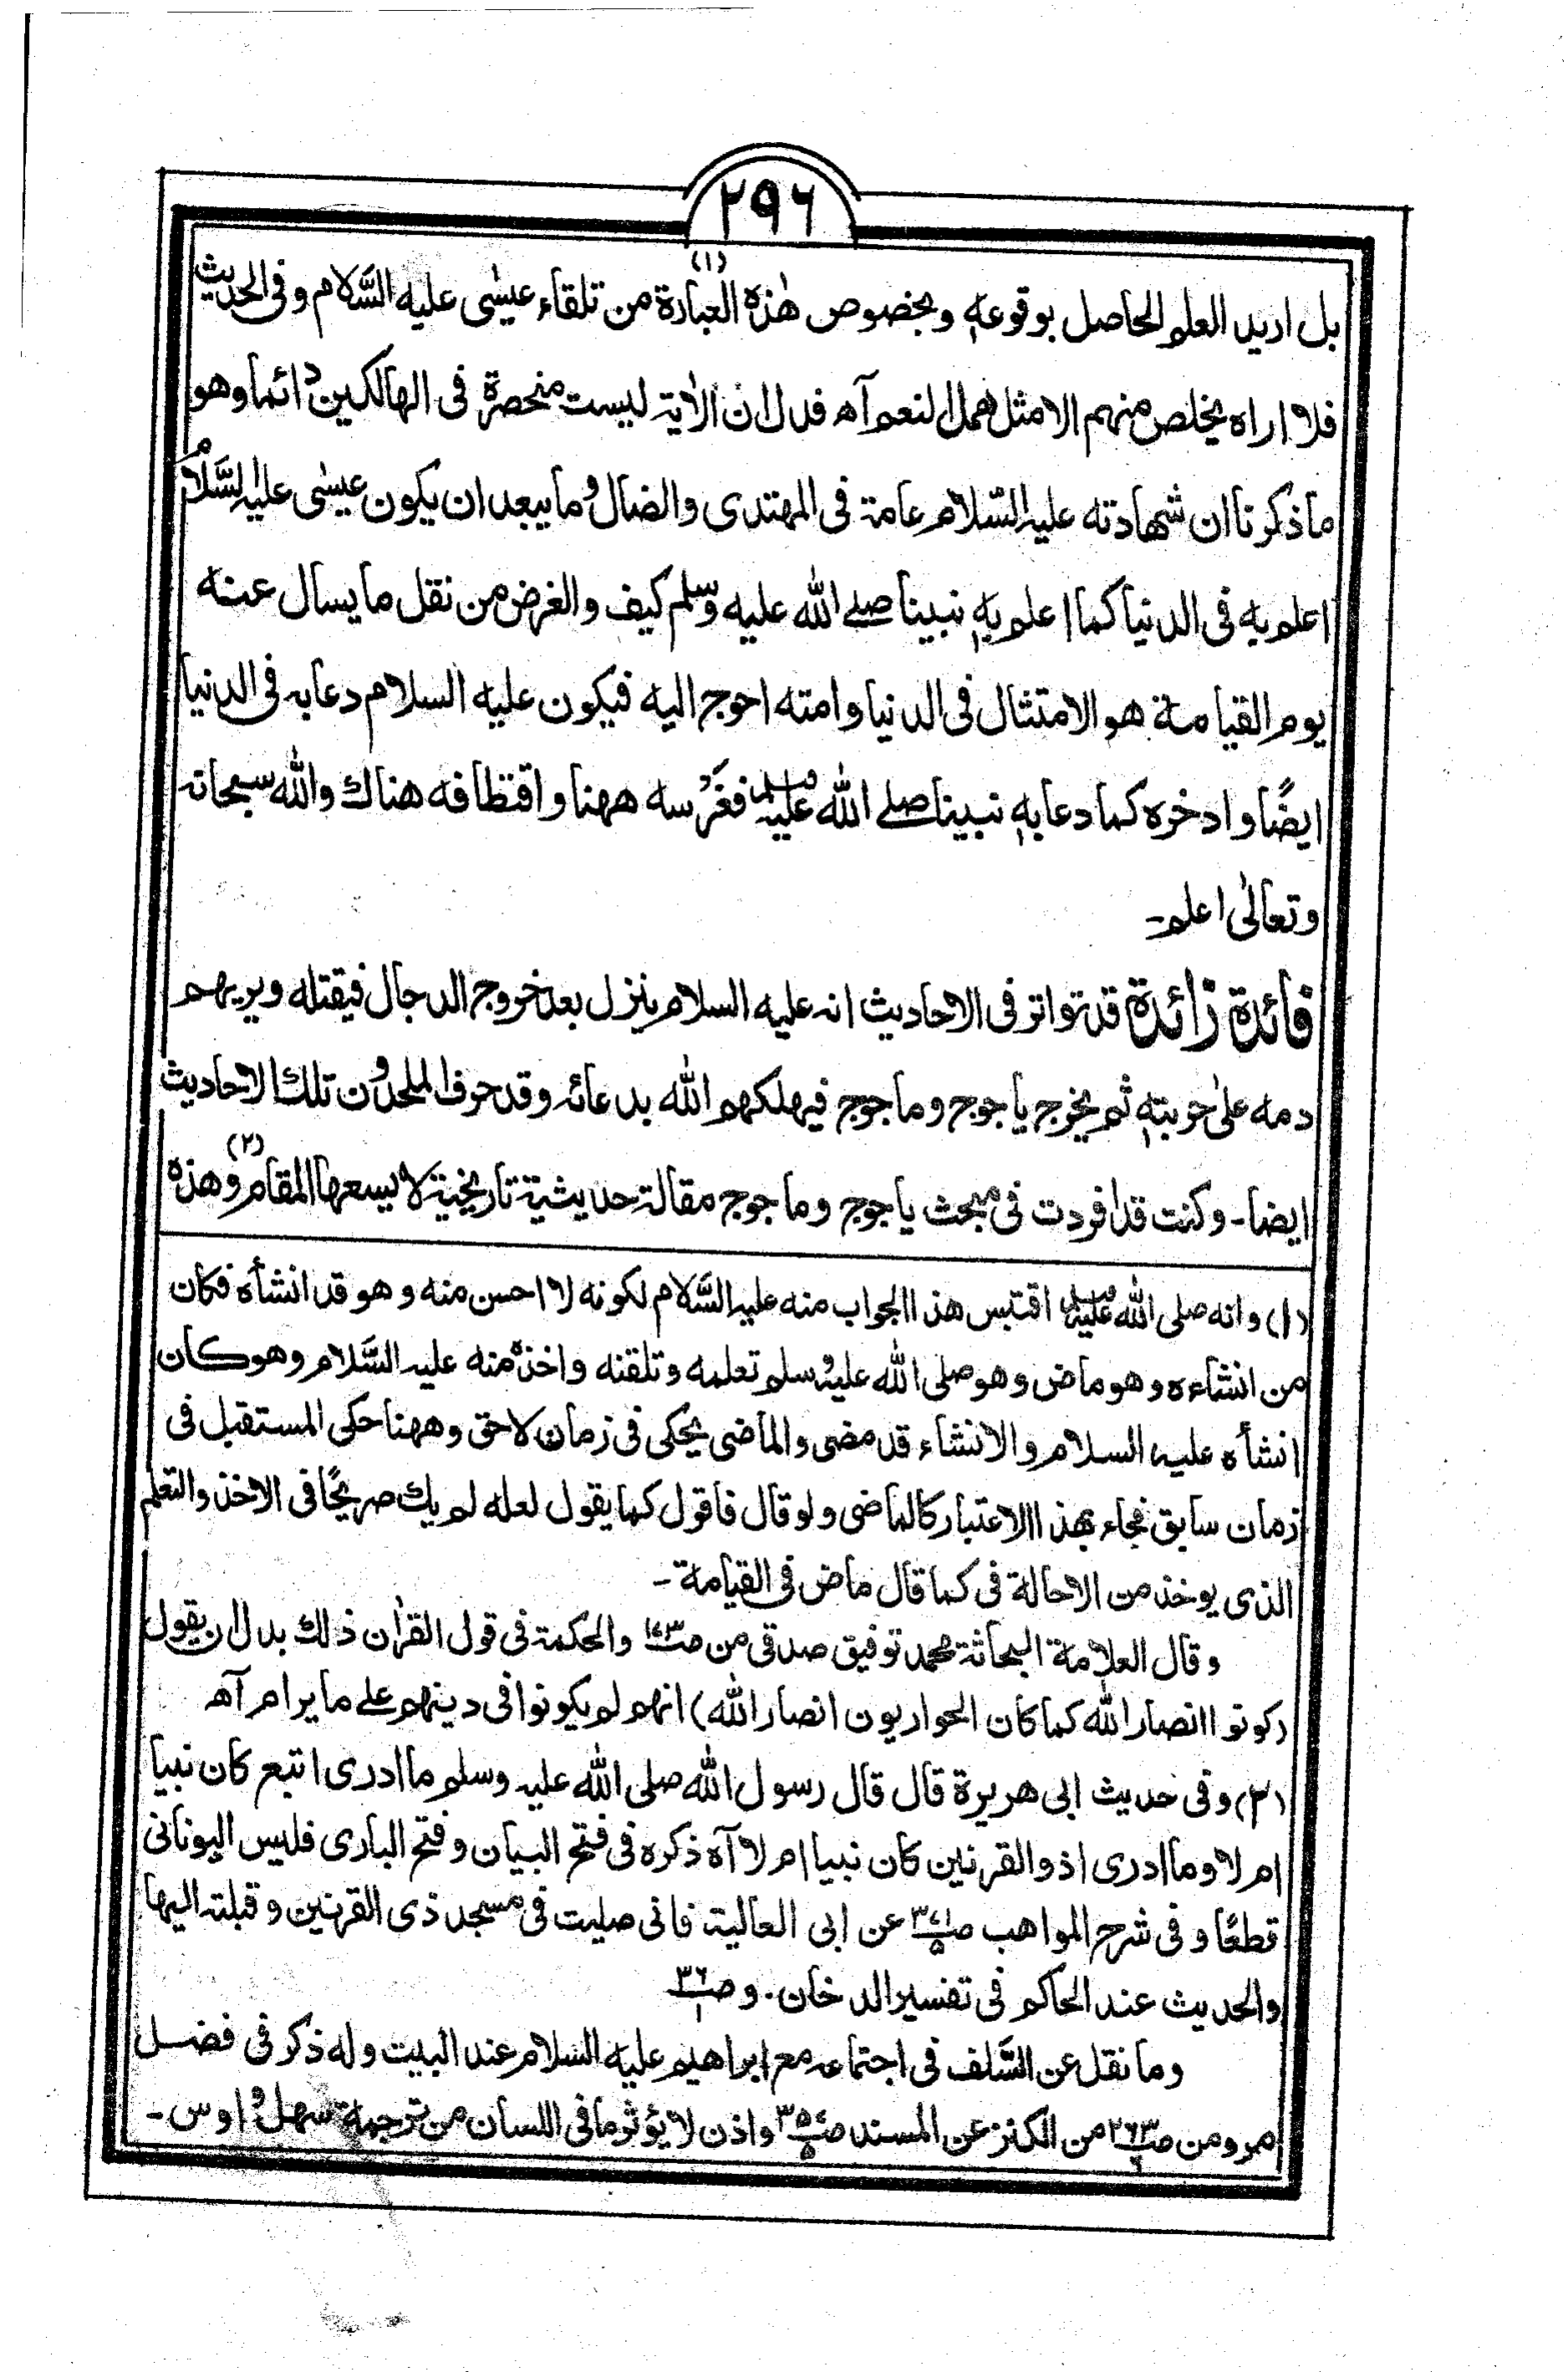 ٢٩٦
بل اريد العلم الحاصل بوقوعه وبخصوص هٰذه العبارة (١) من تلقاء عيسٰى عليه السَّلام وفى الحديث
فلا اراه يخلص منهم الا مثل همل النعم آه فدل ان الاٰية ليست منحصرة فى الهالكين دائما وهو
ما ذكرنا ان شهادته عليه السّلام عامة فى المهتدى والضال وما يبعد ان يكون عيسٰى عليه السَّلام
اعلم به فى الدنيا كما اعلم به نبينا صلے الله عليه وسلم كيف والغرض من نقل ما يسال عنه
يوم القيامة هو الامتثال فى الدنيا وامته احوج اليه فيكون عليه السلام دعا به فى الدنيا
ايضًا وادخره كما دعا به نبينا صلے الله عليه وسلم فغَرْسه ههنا واقتطافه هناك والله سبحانه
وتعالٰى اعلم ـ
فائدة زائدة قد تواتر فى الاحاديث انه عليه السلام ينزل بعد خروج الدجال فيقتله ويريهم
دمه علٰى حربته ثم يخرج ياجوج وماجوج فيهلكهم الله بدعائه وقد حرف الملحدون تلك الاحاديث
ايضا ـ وكنت قد افردت فى مبحث ياجوج وماجوج مقالة حديثية تاريخية لا يسعها المقام (٢) وهذه
(١) وانه صلى الله عليه وسلم اقتبس هذا الجواب منه عليه السَّلام لكونه لا احسن منه وهو قد انشأه فكان
من انشاءه وهو ماض وهو صلى الله عليه وسلم تعلمه وتلقنه واخذه منه عليه السَّلام وهو كان
انشأه عليه السلام والانشاء قد مضى والماضى يحكى فى زمان لاحق وههنا حكى المستقبل فى
زمان سابق فجاء بهذا الاعتبار كالماضى ولو قال فاقول كما يقول لعله لم يك صريحًا فى الاخذ والتعلم
الذى يوخذ من الاحالة فى كما قال ماض فى القيامة ـ
وقال العلامة البحاثة محمد توفيق صدقى من صـ١٤٣ والحكمة فى قول القراٰن ذلك بدل ان يقول
(كونوا انصار الله كما كان الحواريون انصار الله) انهم لم يكونوا فى دينهم علے ما يرام آه
(٢) وفى حديث ابى هريرة قال قال رسول الله صلى الله عليه وسلم ما ادرى اتبع كان نبيا
ام لا وما ادرى اذو القرنين كان نبيا ام لا آه ذكره فى فتح البيان وفتح البارى فليس اليونانى
قطعًا وفى شرح المواهب عن ابى العالية فانى صليت فى مسجد ذى القرنين وقبلته اليها
والحديث عند الحاكم فى تفسير الدخان. و صـ٣٦/١
وما نقل عن السَّلف فى اجتماعه مع ابراهيم عليه السلام عند البيت وله ذكر فى فضل
مرو ومن صـ٢٦٣/٦ من الكنز عن المسند واذن لا يؤثر ما فى اللسان من ترجمة سهل واوس ـ